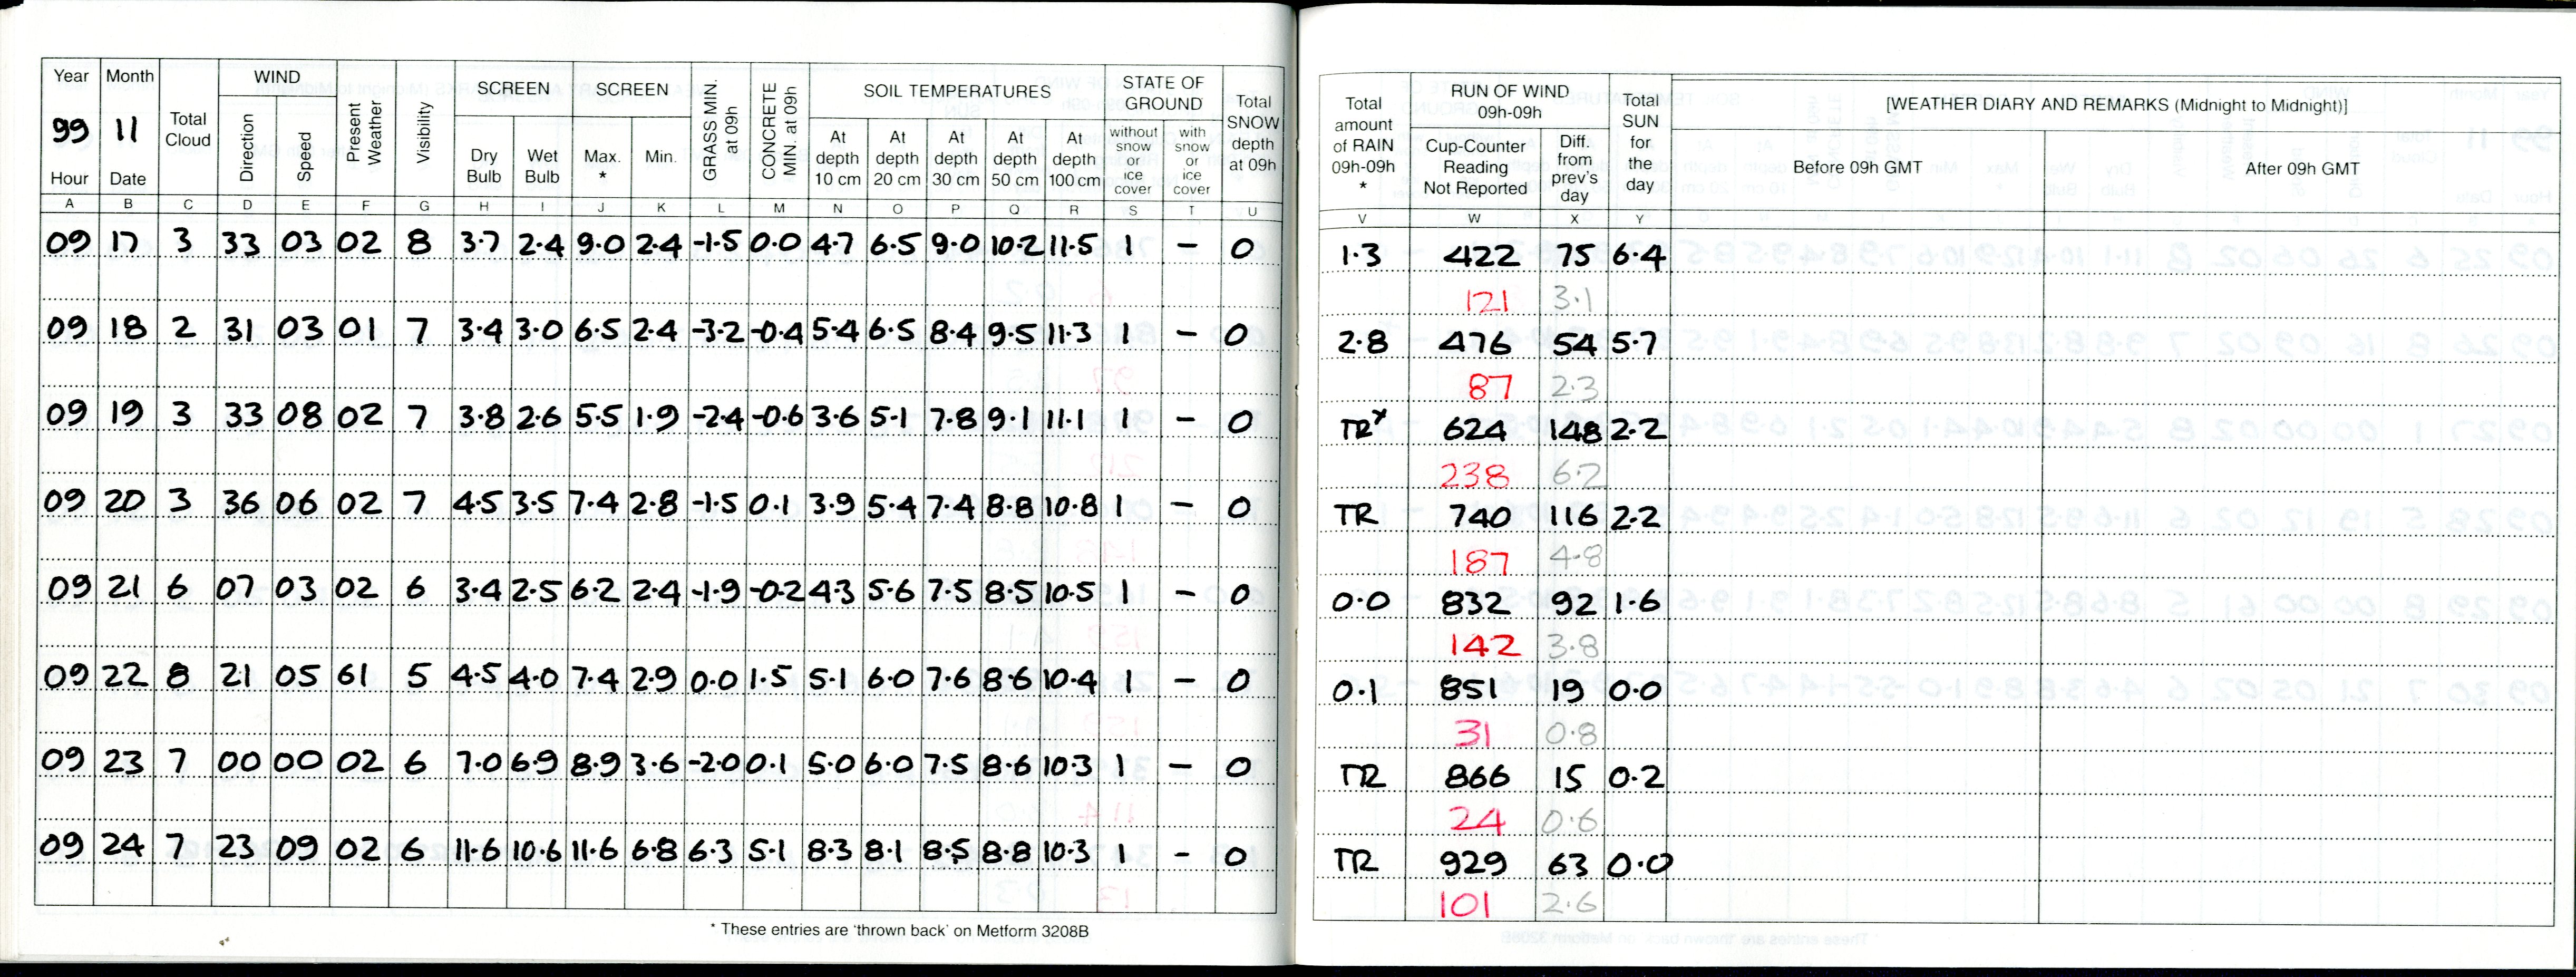 Year Month WIND SCREEN SCREEN SOIL TEMPERATURES STATE OF GROUND
99 11 Total Cloud Direction Speed Present Weather Visibility Dry Bulb Wet Bulb Max. * Min. GRASS MIN. at 09h CONCRETE MIN. at 09h At depth 10 cm At depth 20 cm At depth 30 cm At depth 50 cm At depth 100 cm without snow or ice cover with snow or ice cover Total SNOW depth at 09h
Hour Date
A B C D E F G H I J K L M N O P Q R S T U
09 17 3 33 03 02 8 3.7 2.4 9.0 2.4 -1.5 0.0 4.7 6.5 9.0 10.2 11.5 1 - 0
09 18 2 31 03 01 7 3.4 3.0 6.5 2.4 -3.2 -0.4 5.4 6.5 8.4 9.5 11.3 1 - 0
09 19 3 33 08 02 7 3.8 2.6 5.5 1.9 -2.4 -0.6 3.6 5.1 7.8 9.1 11.1 1 - 0
09 20 3 36 06 02 7 4.5 3.5 7.4 2.8 -1.5 0.1 3.9 5.4 7.4 8.8 10.8 1 - 0
09 21 6 07 03 02 6 3.4 2.5 6.2 2.4 -1.9 -0.2 4.3 5.6 7.5 8.5 10.5 1 - 0
09 22 8 21 05 61 5 4.5 4.0 7.4 2.9 0.0 1.5 5.1 6.0 7.6 8.6 10.4 1 - 0
09 23 7 00 00 02 6 7.0 6.9 8.9 3.6 -2.0 0.1 5.0 6.0 7.5 8.6 10.3 1 - 0
09 24 7 23 09 02 6 11.6 10.6 11.6 6.8 6.3 5.1 8.3 8.1 8.5 8.8 10.3 1 - 0
* These entries are 'thrown back' on Metform 3208B
Total amount of RAIN 09h-09h * RUN OF WIND 09h-09h Total SUN for the day [WEATHER DIARY AND REMARKS (Midnight to Midnight)]
Cup-Counter Reading Not Reported Diff. from prev's day Before 09h GMT After 09h GMT
V W X Y
1.3 422 75 6.4
121 3.1
2.8 476 54 5.7
87 2.3
TR* 624 148 2.2
238 6.2
TR 740 116 2.2
187 4.8
0.0 832 92 1.6
142 3.8
0.1 851 19 0.0
31 0.8
TR 866 15 0.2
24 0.6
TR 929 63 0.0
101 2.6